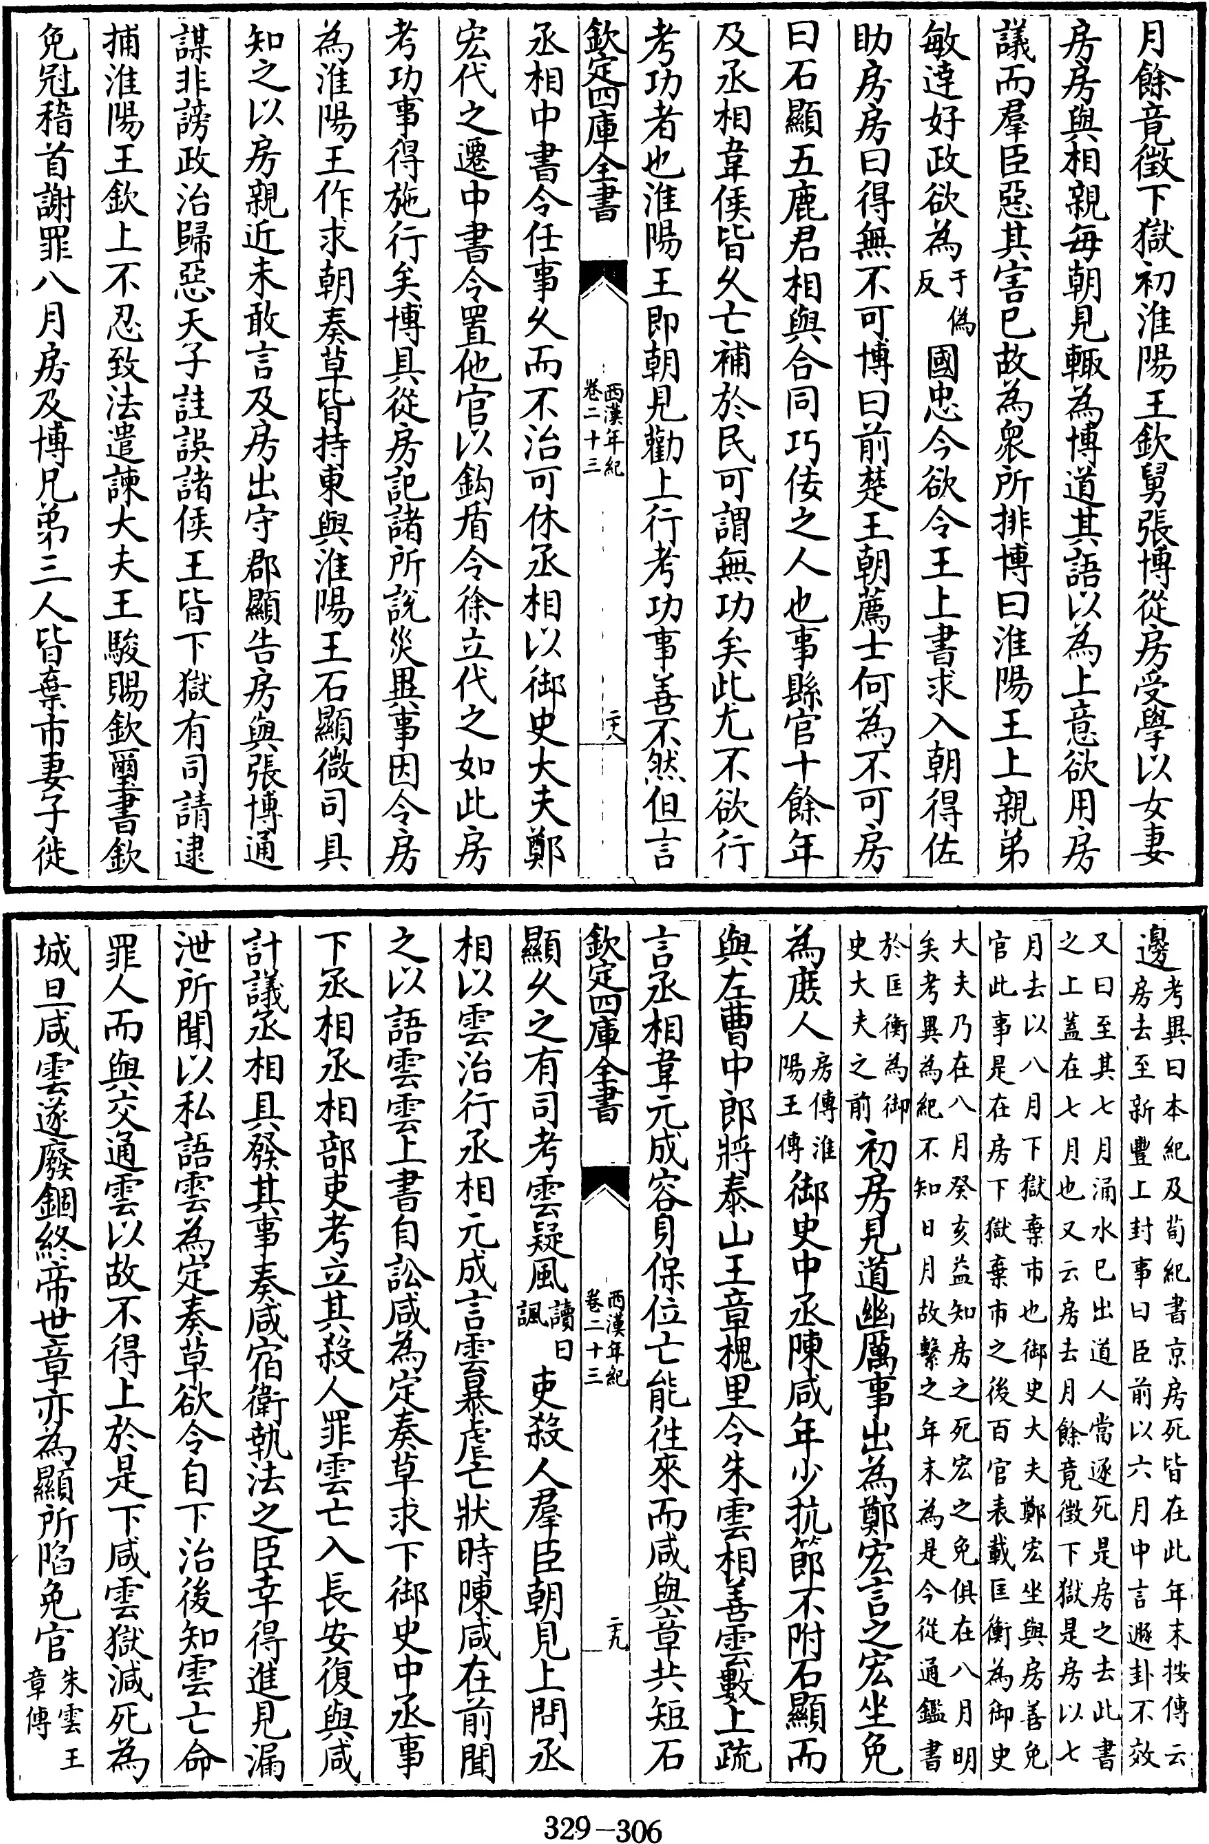 月餘竟徵下獄初淮陽王欽舅張博從房受學以女妻
房房與相親每朝見輒為博道其語以為上意欲用房
議而羣臣惡其害已故為衆所排博曰淮陽王上親弟
敏達好政欲為于偽反國忠今欲令王上書求入朝得佐
助房房曰得無不可博曰前楚王朝薦士何為不可房
曰石顯五鹿君相與合同巧佞之人也事縣官十餘年
及丞相韋侯皆久亡補於民可謂無功矣此尤不欲行
考功者也淮陽王即朝見勸上行考功事善不然但言
欽定四庫全書
西漢年紀
卷二十三
二十八
丞相中書令任事久而不治可休丞相以御史大夫鄭
宏代之遷中書令置他官以鈎盾令徐立代之如此房
考功事得施行矣博具從房記諸所說災異事因令房
為淮陽王作求朝奏草皆持東與淮陽王石顯微司具
知之以房親近未敢言及房出守郡顯告房與張博通
謀非謗政治歸惡天子詿誤諸侯王皆下獄有司請逮
捕淮陽王欽上不忍致法遣諫大夫王駿賜欽璽書欽
免冠稽首謝罪八月房及博兄弟三人皆棄市妻子徙
邊考異曰本紀及荀紀書京房死皆在此年末按傳云
房去至新豐上封事曰臣前以六月中言遯卦不效
又曰至其七月涌水已出道人當逐死是房之去此書
之上蓋在七月也又云房去月餘竟徵下獄是房以七
月去以八月下獄棄市也御史大夫鄭宏坐與房善免
官此事是在房下獄棄市之後百官表載匡衡為御史
大夫乃在八月癸亥益知房之死宏之免俱在八月明
矣考異為紀不知日月故繫之年末為是今從通鑑書
於匡衡為御史大夫之前初房見道幽厲事出為鄭宏言之宏坐免
為庶人房傳淮陽王傳御史中丞陳咸年少抗節不附石顯而
與左曹中郎將泰山王章槐里令朱雲相善雲數上疏
言丞相韋元成容身保位亡能往來而咸與章共短石
欽定四庫全書
西漢年紀
卷二十三
二十九
顯久之有司考雲疑風讀曰諷吏殺人羣臣朝見上問丞
相以雲治行丞相元成言雲暴虐亡狀時陳咸在前聞
之以語雲雲上書自訟咸為定奏草求下御史中丞事
下丞相丞相部吏考立其殺人罪雲亡入長安復與咸
計議丞相具發其事奏咸宿衛執法之臣幸得進見漏
泄所聞以私語雲為定奏草欲令自下治後知雲亡命
罪人而與交通雲以故不得上於是下咸雲獄減死為
城旦咸雲遂廢錮終帝世章亦為顯所陷免官朱雲王章傳
329-306